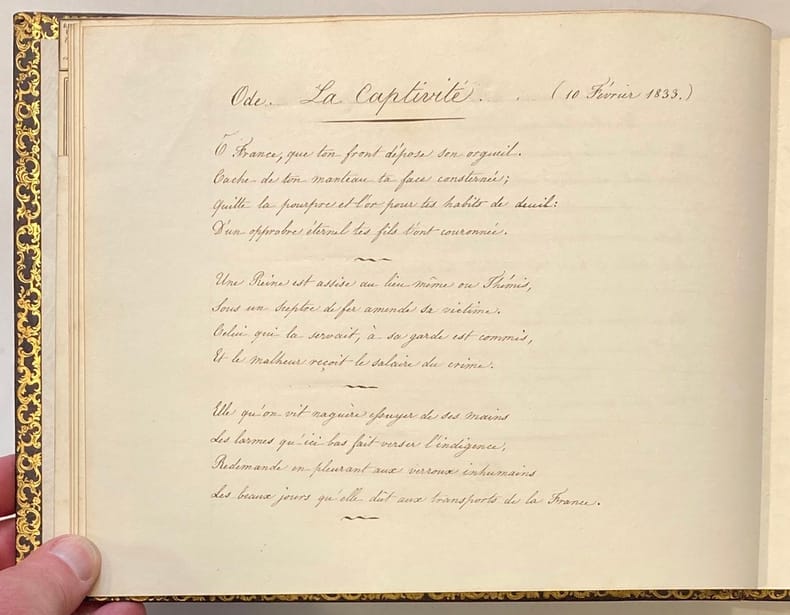 Ode. La Captivité. . (10 Février 1833.)
Ô France, que ton front dépose son orgueil.
Cache de ton manteau ta face consternée;
Quitte la pourpre et l'or pour tes habits de deuil:
D'un opprobre éternel tes fils t'ont couronnée.
Une Reine est assise au lieu même ou Thémis,
Sous un sceptre de fer amende sa victime.
Celui qui la servait, à sa garde est commis,
Et le malheur reçoit le salaire du crime.
Elle qu'on vit naguère essuyer de ses mains
Les larmes qu'ici bas fait verser l'indigence,
Redemande en pleurant aux verroux inhumains
Les beaux jours qu'elle dût aux transports de la France.